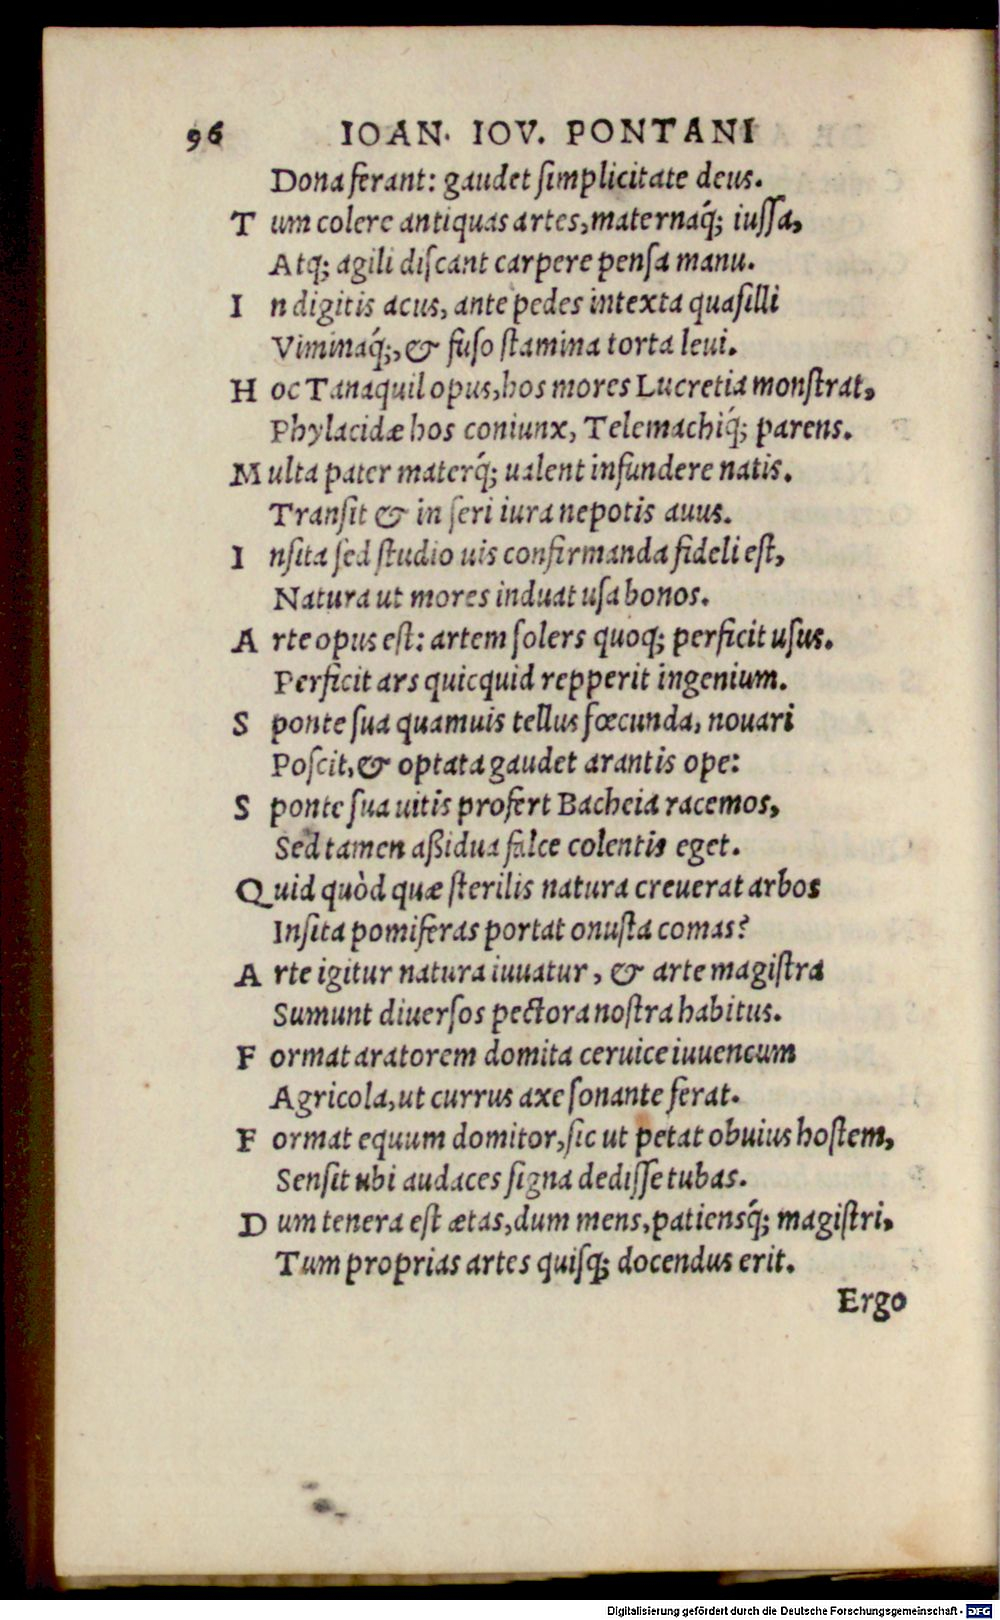 96 IOAN. IOV. PONTANI
Dona ferant: gaudet ſimplicitate deus.
T um colere antiquas artes, maternaq́; iuſſa,
Atq; agili diſcant carpere penſa manu.
I n digitis acus, ante pedes intexta quaſilli
Viminaq́;, & fuſo ſtamina torta leui.
H oc Tanaquil opus, hos mores Lucretia monſtrat,
Phylacidæ hos coniunx, Telemachiq́; parens.
M ulta pater materq́; ualent infundere natis.
Tranſit & in ſeri iura nepotis auus.
I nſita ſed ſtudio uis confirmanda fideli eſt,
Natura ut mores induat uſa bonos.
A rte opus eſt: artem ſolers quoq; perficit uſus.
Perficit ars quicquid repperit ingenium.
S ponte ſua quamuis tellus fœcunda, nouari
Poſcit, & optata gaudet arantis ope:
S ponte ſua uitis profert Bacheia racemos,
Sed tamen aßidua falce colentis eget.
Q uid quòd quæ ſterilis natura creuerat arbos
Inſita pomiferas portat onuſta comas?
A rte igitur natura iuuatur, & arte magiſtra
Sumunt diuerſos pectora noſtra habitus.
F ormat aratorem domita ceruice iuuencum
Agricola, ut currus axe ſonante ferat.
F ormat equum domitor, ſic ut petat obuius hoſtem,
Senſit ubi audaces ſigna dediſſe tubas.
D um tenera eſt ætas, dum mens, patiensq́; magiſtri,
Tum proprias artes quiſq; docendus erit.
Ergo
Digitalisierung gefördert durch die Deutsche Forschungsgemeinschaft - DFG